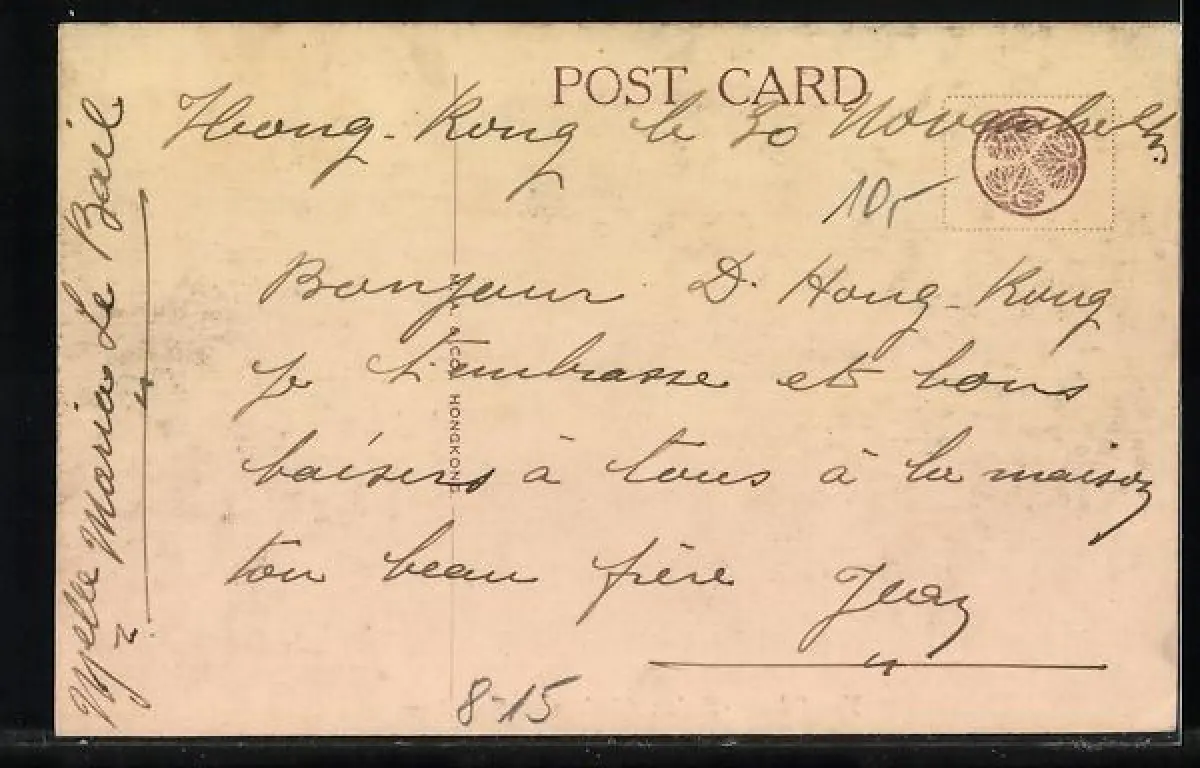 POST CARD
Hong-Kong le 30 Novembre
10,-
Bonjour D. Hong-Kong
je t'embrasse et bons
baisers à tous à la maison
ton beau frère Jean
8-15
Melle Marion Le Bail
& CO. HONGKONG